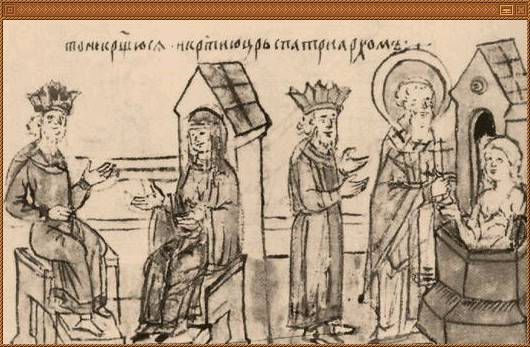 тонекрщ҃юся · икрт҃июцр҃ьспатриархомъ:·